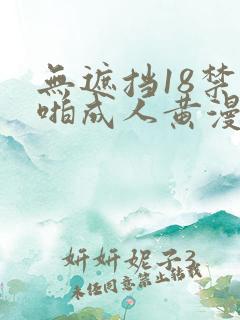 無遮挡18禁
啪成人黄漫
妍妍妮子3
未经同意禁止转载